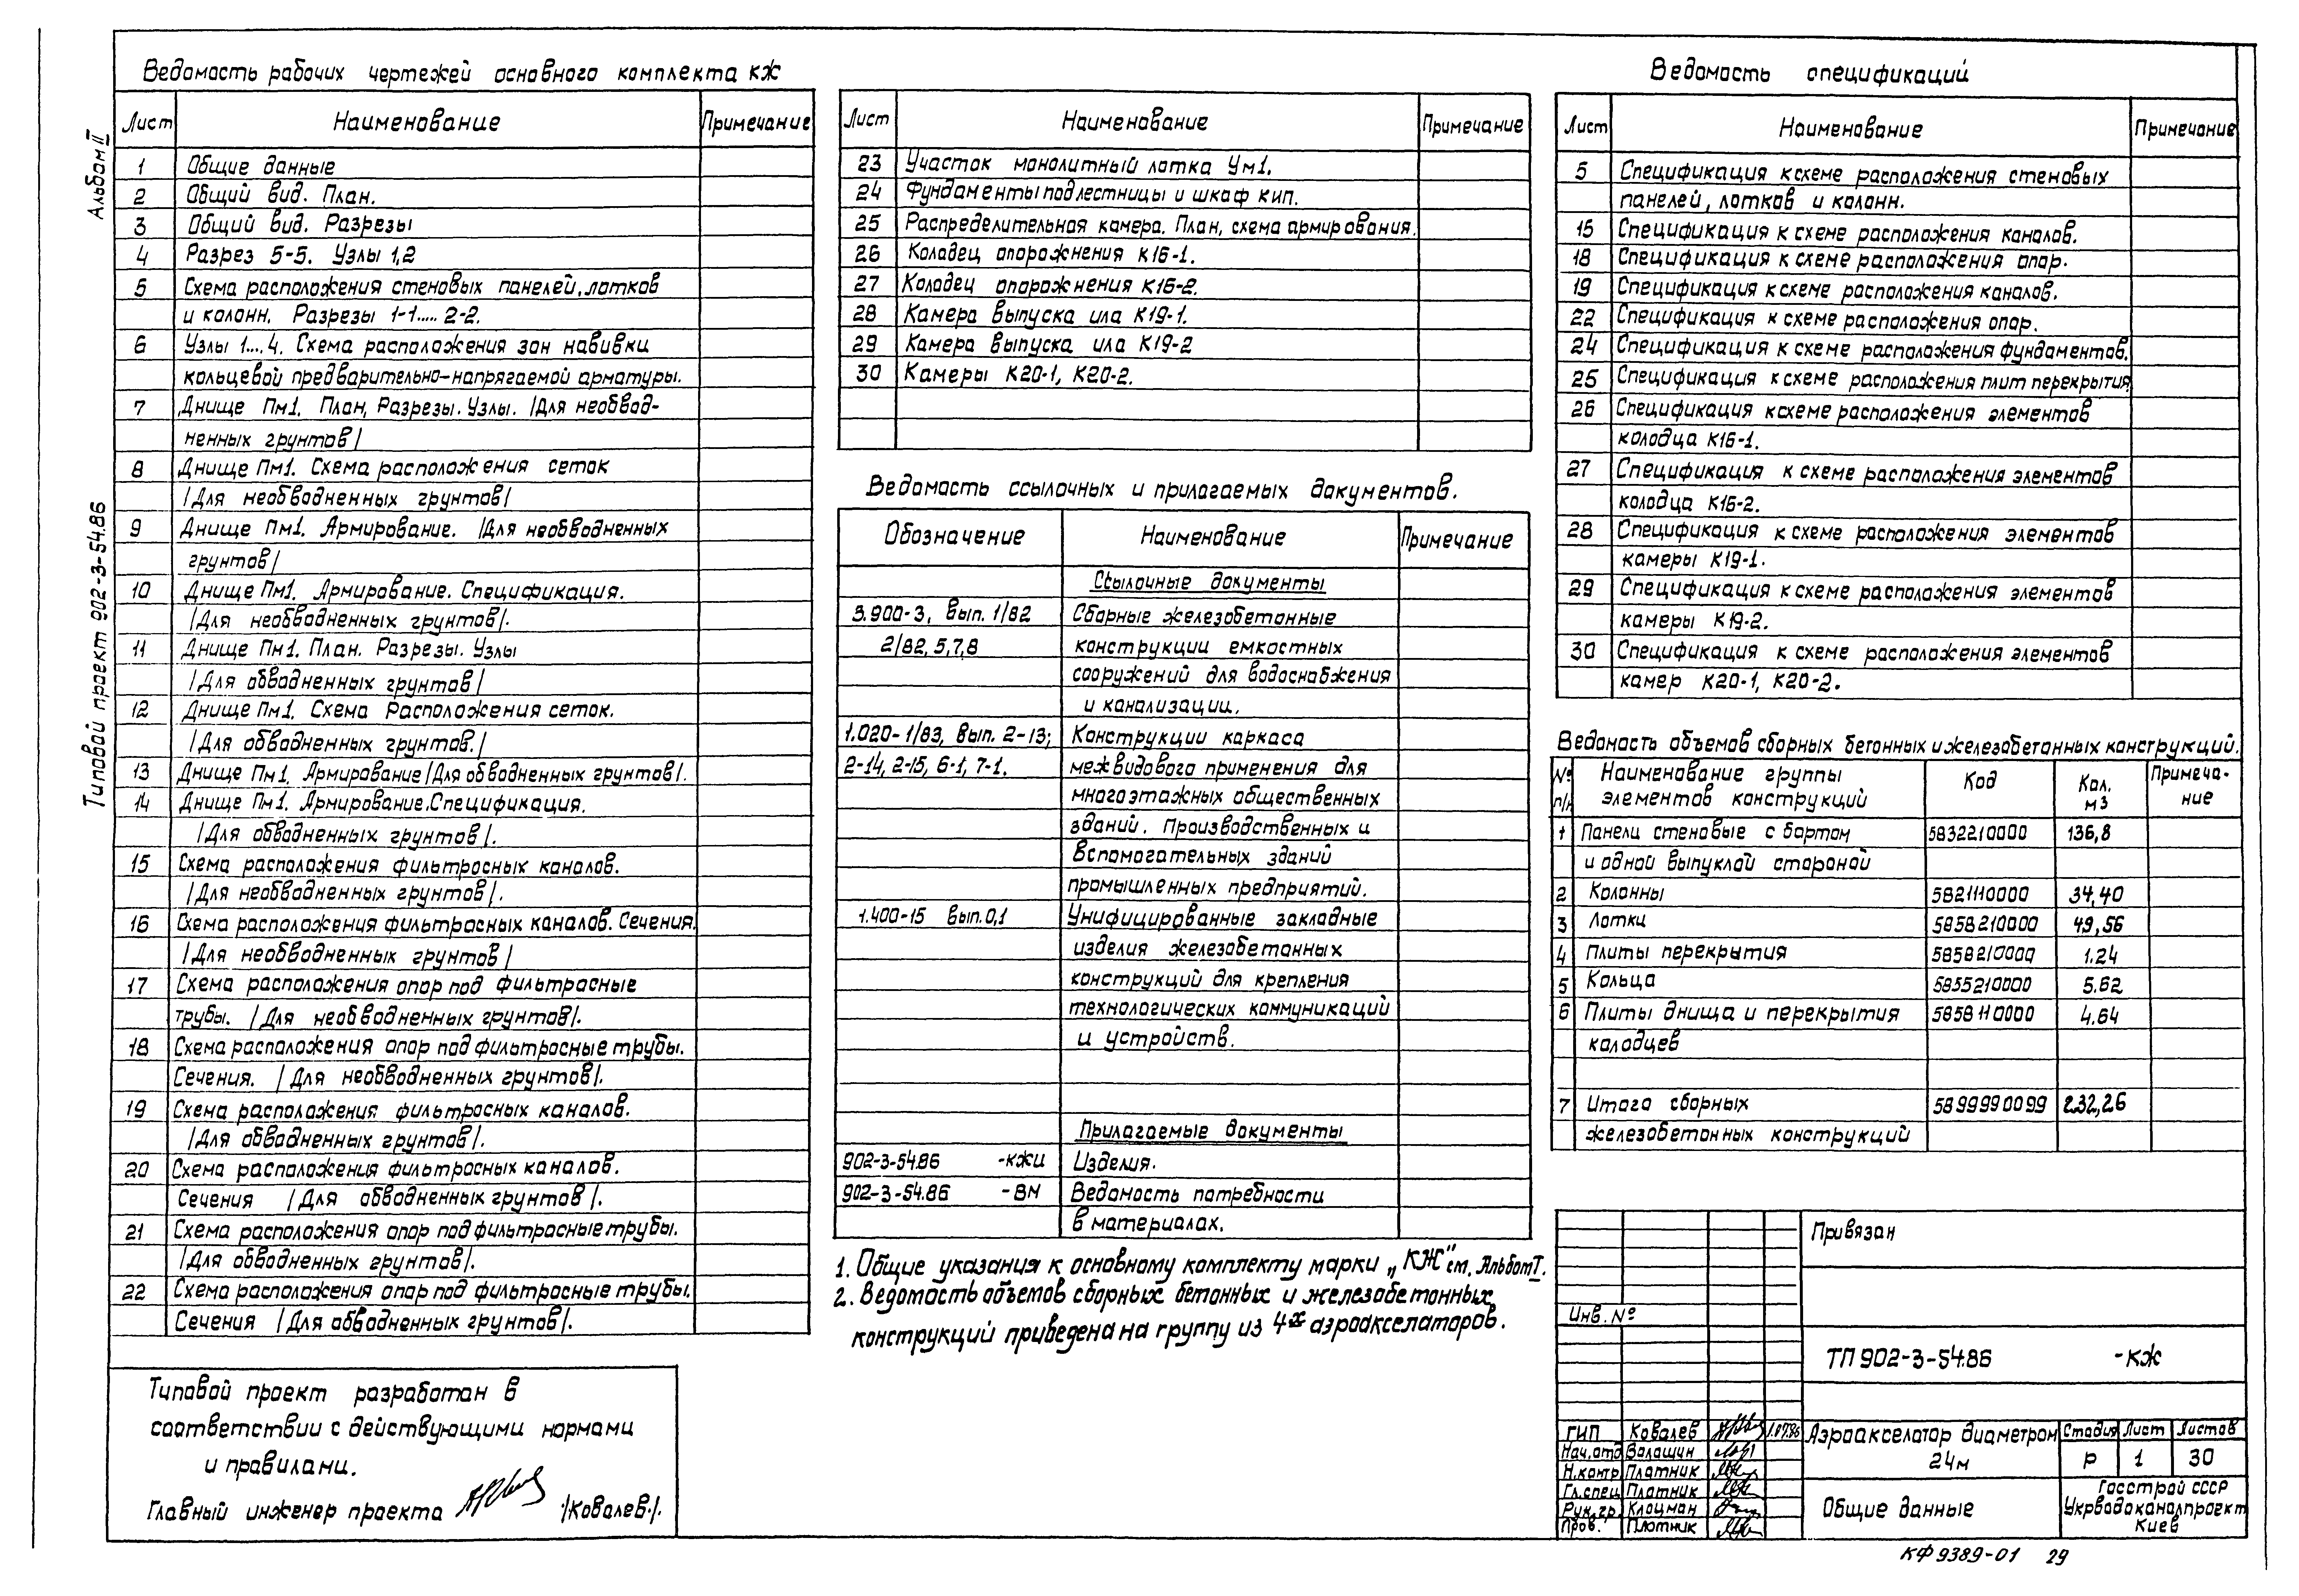 Альбом II
Типовой проект 902-3-54.86
Ведомость рабочих чертежей основного комплекта КЖ
Лист Наименование Примечание
1 Общие данные
2 Общий вид. План.
3 Общий вид. Разрезы
4 Разрез 5-5. Узлы 1,2
5 Схема расположения стеновых панелей, лотков
и колонн. Разрезы 1-1..... 2-2.
6 Узлы 1....4. Схема расположения зон навивки
кольцевой предварительно-напрягаемой арматуры.
7 Днище Пм1. План, Разрезы. Узлы. /Для необвод-
ненных грунтов/
8 Днище Пм1. Схема расположения сеток
/Для необводненных грунтов/
9 Днище Пм1. Армирование. /Для необводненных
грунтов/
10 Днище Пм1. Армирование. Спецификация.
/Для необводненных грунтов/.
11 Днище Пм1. План. Разрезы. Узлы
/Для обводненных грунтов/
12 Днище Пм1. Схема Расположения сеток.
/Для обводненных грунтов./
13 Днище Пм1. Армирование /Для обводненных грунтов/.
14 Днище Пм1. Армирование. Спецификация.
/Для обводненных грунтов/.
15 Схема расположения фильтросных каналов.
/Для необводненных грунтов/.
16 Схема расположения фильтросных каналов. Сечения.
/Для необводненных грунтов/
17 Схема расположения опор под фильтросные
трубы. /Для необводненных грунтов/.
18 Схема расположения опор под фильтросные трубы.
Сечения. /Для необводненных грунтов/.
19 Схема расположения фильтросных каналов.
/Для обводненных грунтов/.
20 Схема расположения фильтросных каналов.
Сечения /Для обводненных грунтов/.
21 Схема расположения опор под фильтросные трубы.
/Для обводненных грунтов/.
22 Схема расположения опор под фильтросные трубы.
Сечения /Для обводненных грунтов/.
Типовой проект разработан в
соответствии с действующими нормами
и правилами.
Главный инженер проекта /Ковалев./.
Лист Наименование Примечание
23 Участок монолитный лотка Ум1.
24 Фундаменты под лестницы и шкаф кип.
25 Распределительная камера. План, схема армирования.
26 Колодец опорожнения К16-1.
27 Колодец опорожнения К16-2.
28 Камера выпуска ила К19-1.
29 Камера выпуска ила К19-2
30 Камеры К20-1, К20-2.
Ведомость ссылочных и прилагаемых документов.
Обозначение Наименование Примечание
Ссылочные документы
3.900-3, вып. 1/82 Сборные железобетонные
2/82, 5,7,8 конструкции емкостных
сооружений для водоснабжения
и канализации.
1.020-1/83, вып. 2-13; Конструкции каркаса
2-14, 2-15, 6-1, 7-1. межвидового применения для
многоэтажных общественных
зданий. Производственных и
вспомогательных зданий
промышленных предприятий.
1.400-15 вып. 0,1 Унифицированные закладные
изделия железобетонных
конструкций для крепления
технологических коммуникаций
и устройств.
Прилагаемые документы
902-3-54.86 -КЖИ Изделия.
902-3-54.86 -ВМ Ведомость потребности
в материалах.
1. Общие указания к основному комплекту марки „КЖ" см. Альбом I.
2. Ведомость объемов сборных бетонных и железобетонных
конструкций приведена на группу из 4х аэроакселаторов.
Ведомость спецификаций
Лист Наименование Примечание
5 Спецификация к схеме расположения стеновых
панелей, лотков и колонн.
15 Спецификация к схеме расположения каналов.
18 Спецификация к схеме расположения опор.
19 Спецификация к схеме расположения каналов.
22 Спецификация к схеме расположения опор.
24 Спецификация к схеме расположения фундаментов.
25 Спецификация к схеме расположения плит перекрытия.
26 Спецификация к схеме расположения элементов
колодца К16-1.
27 Спецификация к схеме расположения элементов
колодца К16-2.
28 Спецификация к схеме расположения элементов
камеры К19-1.
29 Спецификация к схеме расположения элементов
камеры К19-2.
30 Спецификация к схеме расположения элементов
камер К20-1, К20-2.
Ведомость объемов сборных бетонных и железобетонных конструкций.
№ п/н Наименование группы элементов конструкций Код Кол. м3 Примеча-ние
1 Панели стеновые с бортом 5832210000 136,8
и одной выпуклой стороной
2 Колонны 5821110000 34,40
3 Лотки 5858210000 49,56
4 Плиты перекрытия 5858210000 1.24
5 Кольца 5855210000 5.62
6 Плиты днища и перекрытия 5858110000 4.64
колодцев
7 Итого сборных 5899990099 232,26
железобетонных конструкций
Привязан
Инв. №
ТП 902-3-54.86 -КЖ
ГИП Ковалев 1.07.86
Нач. отд Валашин
Н. контр. Платник
Гл. спец Платник
Рук. гр. Клоцман
Пров. Плотник
Аэроакселатор диаметром
24м
Стадия Лист Листов
Р 1 30
Общие данные
Госстрой СССР
Укрводоканалпроект
Киев
КФ 9389-01 29